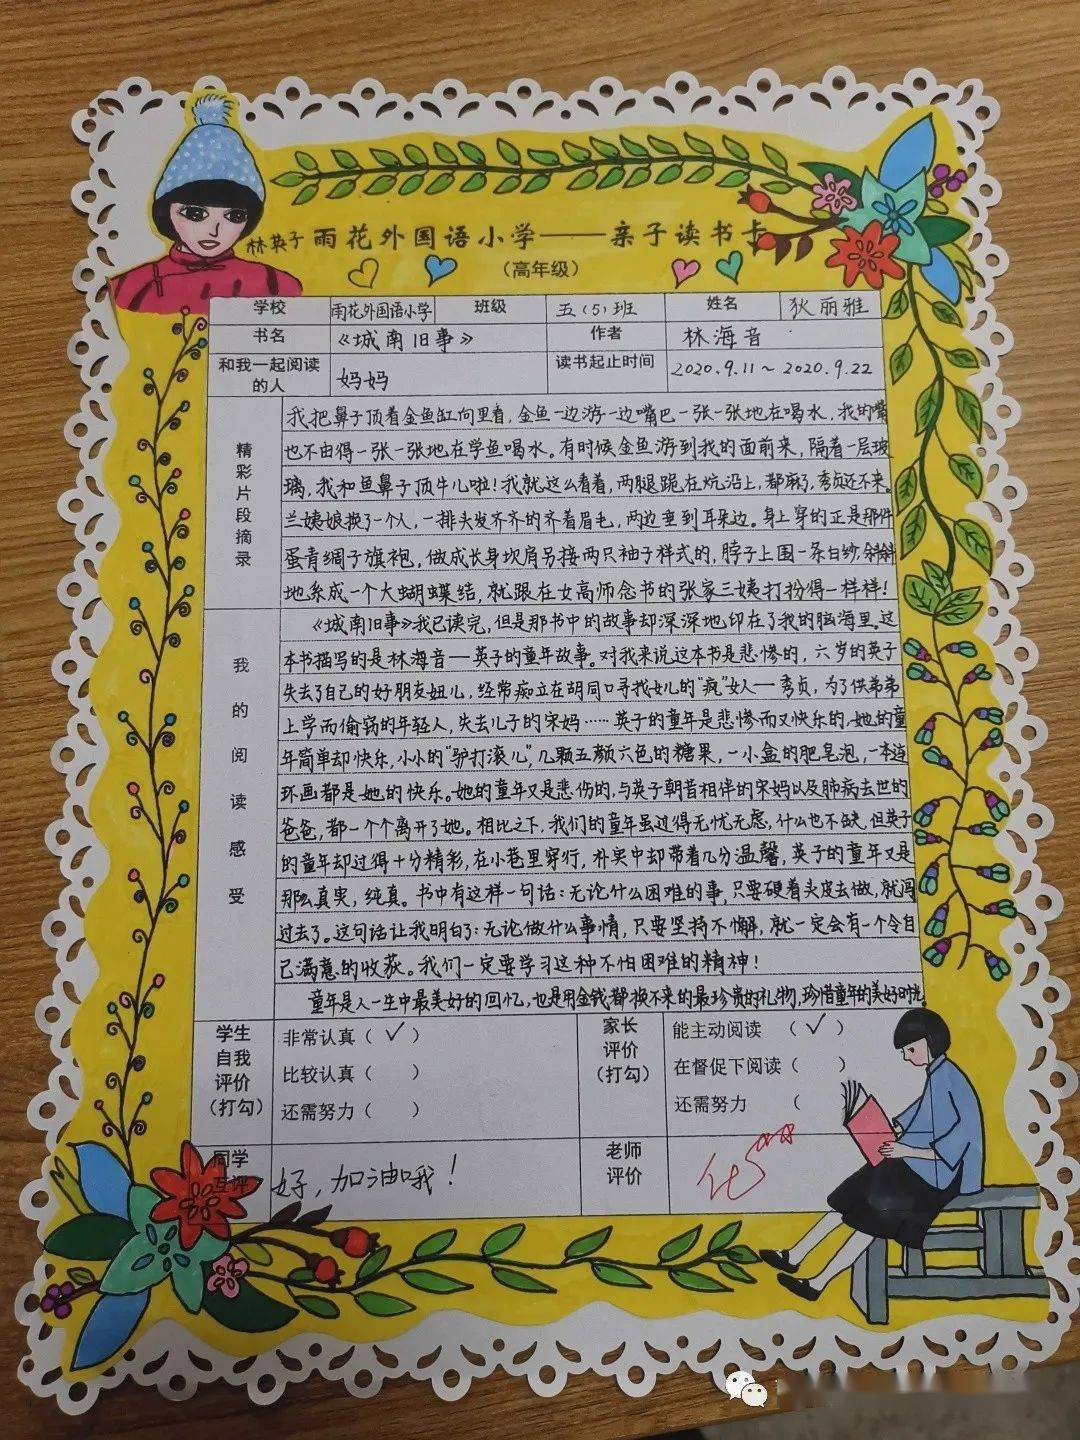 林英子 雨花外国语小学——亲子读书卡
（高年级）
学校 雨花外国语小学 班级 五（5）班 姓名 狄丽雅
书名 《城南旧事》 作者 林海音
和我一起阅读的人 妈妈 读书起止时间 2020.9.11～2020.9.22
精彩片段摘录
我把鼻子顶着金鱼缸向里看,金鱼一边游一边嘴巴一张一张地在喝水.我的嘴
也不由得一张一张地在学鱼喝水。有时候金鱼游到我的面前来,隔着一层玻
璃,我和鱼鼻子顶牛儿啦!我就这么看着,两腿跪在炕沿上,都麻了,秀贞还不来。
兰姨娘换了一个人,一排头发齐齐的齐着眉毛,两边垂到耳朵边。身上穿的正是那件
蛋青绸子旗袍,做成长身坎肩另接两只袖子样式的,脖子上围一条白纱,斜斜
地系成一个大蝴蝶结,就跟在女高师念书的张家三姨打扮得一样样!
我的阅读感受
《城南旧事》我已读完,但是那书中的故事却深深地印在了我的脑海里.这
本书描写的是林海音—英子的童年故事。对我来说这本书是悲惨的,六岁的英子
失去了自己的好朋友妞儿,经常痴立在胡同口寻找女儿的“疯”女人—秀贞,为了供弟弟
上学而偷窃的年轻人,失去儿子的宋妈……英子的童年是悲惨而又快乐的.她的童
年简单却快乐,小小的“驴打滚儿”,几颗五颜六色的糖果,一小盒的肥皂泡,一本连
环画都是她的快乐。她的童年又是悲伤的,与英子朝昔相伴的宋妈以及肺病去世的
爸爸,都一个个离开了她。相比之下,我们的童年虽过得无忧无虑,什么也不缺,但英子
的童年却过得十分精彩,在小巷里穿行,朴实中却带着几分温馨,英子的童年又是
那么真实,纯真。书中有这样一句话:无论什么困难的事,只要硬着头皮去做,就闯
过去了。这句话让我明白了:无论做什么事情,只要坚持不懈,就一定会有一个令自
己满意的收获。我们一定要学习这种不怕困难的精神!
童年是人一生中最美好的回忆,也是用金钱都换不来的最珍贵的礼物,珍惜童年的美好时光。
学生自我评价（打勾）
非常认真（✓）
比较认真（ ）
还需努力（ ）
家长评价（打勾）
能主动阅读（✓）
在督促下阅读（ ）
还需努力（
同学互评 好,加油哦!
老师评价